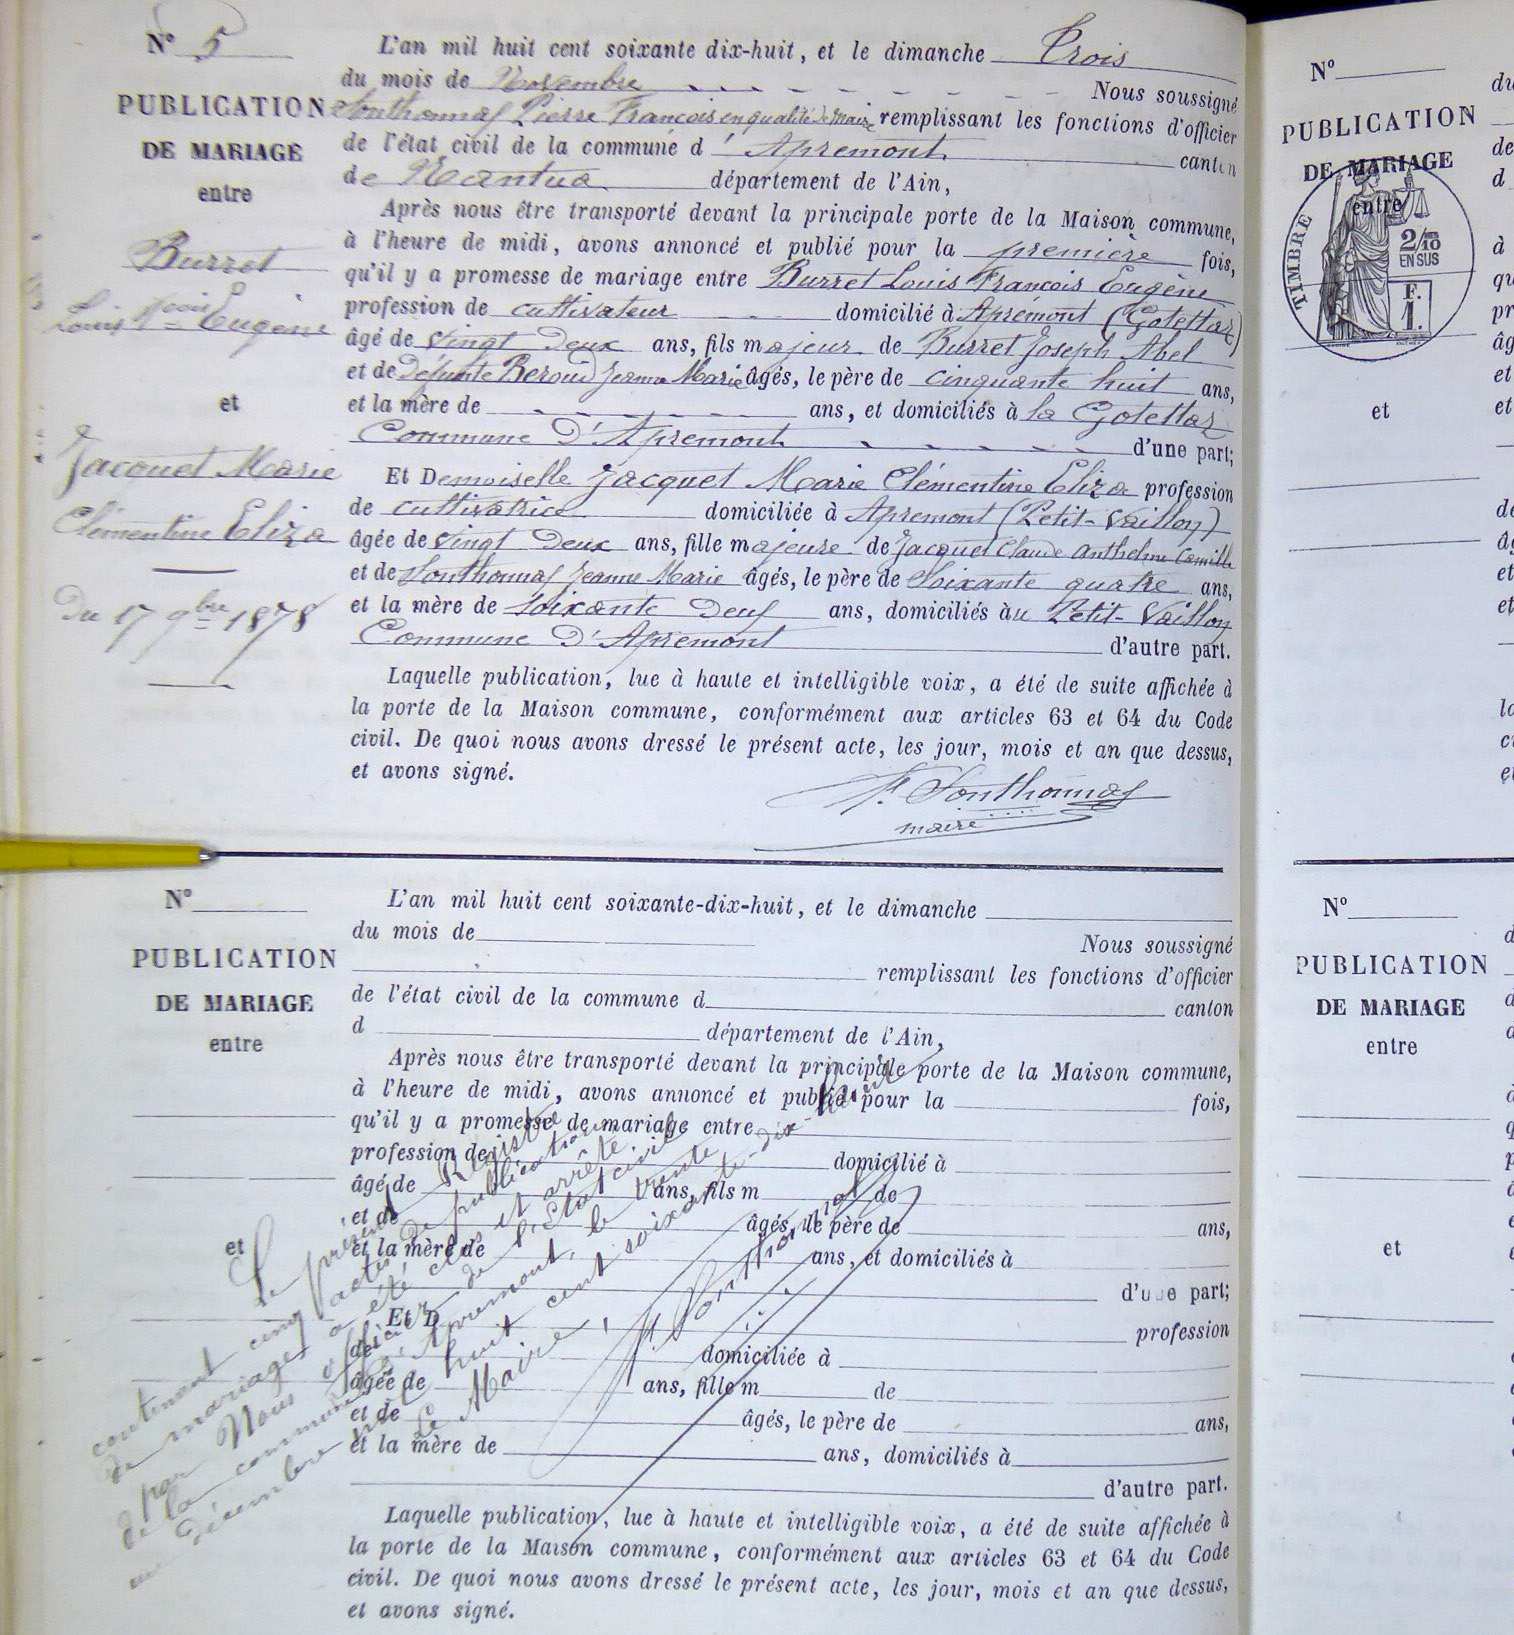 N° 5
PUBLICATION
DE MARIAGE
entre
Burret
Louis Fçois Eugène
et
Jacquet Marie
Clémentine Eliza
Du 17 9bre 1878
L'an mil huit cent soixante dix-huit, et le dimanche Trois
du mois de Novembre Nous soussigné
Sonthonnaf Pierre François en qualité de Maire remplissant les fonctions d'officier
de l'état civil de la commune d'Apremont canton
de Nantua département de l'Ain,
Après nous être transporté devant la principale porte de la Maison commune,
à l'heure de midi, avons annoncé et publié pour la première fois,
qu'il y a promesse de mariage entre Burret Louis François Eugène
profession de cultivateur domicilié à Apremont (Gotettaz)
âgé de vingt deux ans, fils majeur de Burret Joseph Abel
et de Défunte Beroud Jeanne Marie âgés, le père de cinquante huit ans,
et la mère de ans, et domiciliés à la Gotettaz
Commune d'Apremont d'une part;
Et Demoiselle Jacquet Marie Clémentine Eliza profession
de cultivatrice domiciliée à Apremont (Petit-Vaillon)
âgée de vingt deux ans, fille majeure de Jacquet Claude Anthelme Camille
et de Sonthonnaf Jeanne Marie âgés, le père de Soixante quatre ans,
et la mère de soixante deuf ans, domiciliés àu Petit-Vaillon
Commune d'Apremont d'autre part.
Laquelle publication, lue à haute et intelligible voix, a été de suite affichée à
la porte de la Maison commune, conformément aux articles 63 et 64 du Code
civil. De quoi nous avons dressé le présent acte, les jour, mois et an que dessus,
et avons signé.
F. Sonthonnaf
maire
N°
PUBLICATION
DE MARIAGE
entre
et
L'an mil huit cent soixante-dix-huit, et le dimanche
du mois de Nous soussigné
remplissant les fonctions d'officier
de l'état civil de la commune d canton
d département de l'Ain,
Après nous être transporté devant la principale porte de la Maison commune,
à l'heure de midi, avons annoncé et publié pour la fois,
qu'il y a promesse de mariage entre
profession de domicilié à
âgé de ans, fils m de
et de âgés, le père de ans,
et la mère de ans, et domiciliés à
d'une part;
Et D profession
de domiciliée à
âgée de ans, fille m de
et de âgés, le père de ans,
et la mère de ans, domiciliés à
d'autre part.
Laquelle publication, lue à haute et intelligible voix, a été de suite affichée à
la porte de la Maison commune, conformément aux articles 63 et 64 du Code
civil. De quoi nous avons dressé le présent acte, les jour, mois et an que dessus,
et avons signé.
Le présent Registre
contenant cinq actes de publication
de mariages a été clos et arrêté
par Nous officier de l'Etat civil
de la commune d'Apremont, le trente
un décembre mil huit cent soixante-dix-huit
Le Maire,
F. Sonthonnaf
N°
PUBLICATION
DE MARIAGE
entre
TIMBRE
2/10
EN SUS
F.
1.
et
N°
PUBLICATION
DE MARIAGE
entre
et